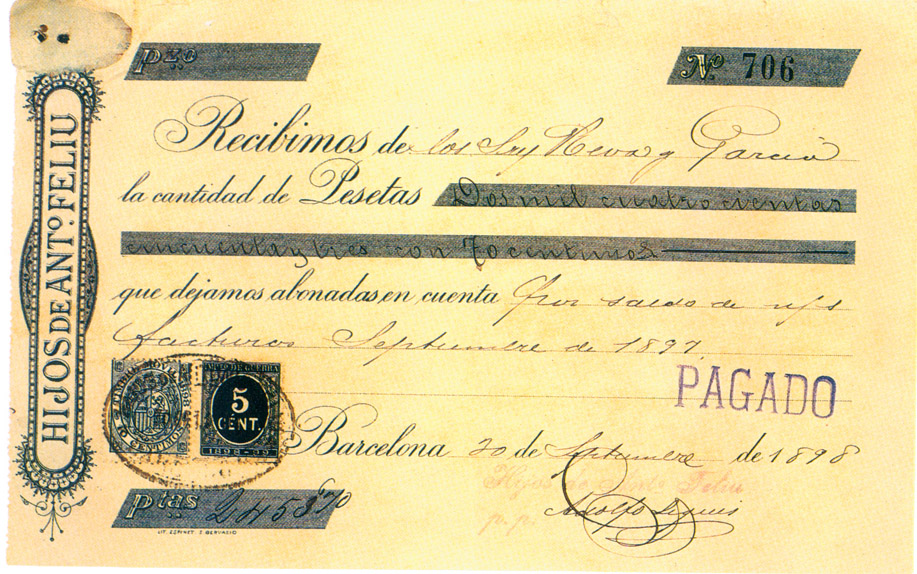 HIJOS DE ANTº. FELIU
pzo
Nº 706
Recibimos de los Srs y García
la cantidad de Pesetas Dos mil cuatro cientas
cincuenta y tres con 70 centimos
que dejamos abonadas en cuenta por saldo de n/s
facturas Septiembre de 1897
PAGADO
5
CÉNT.
1898-99
Barcelona 20 de Septiembre de 1898
Hijos de Antº Feliu
p. p. Adolfo
ptas 2453 70
LIT. ESPINET, S GERVASIO